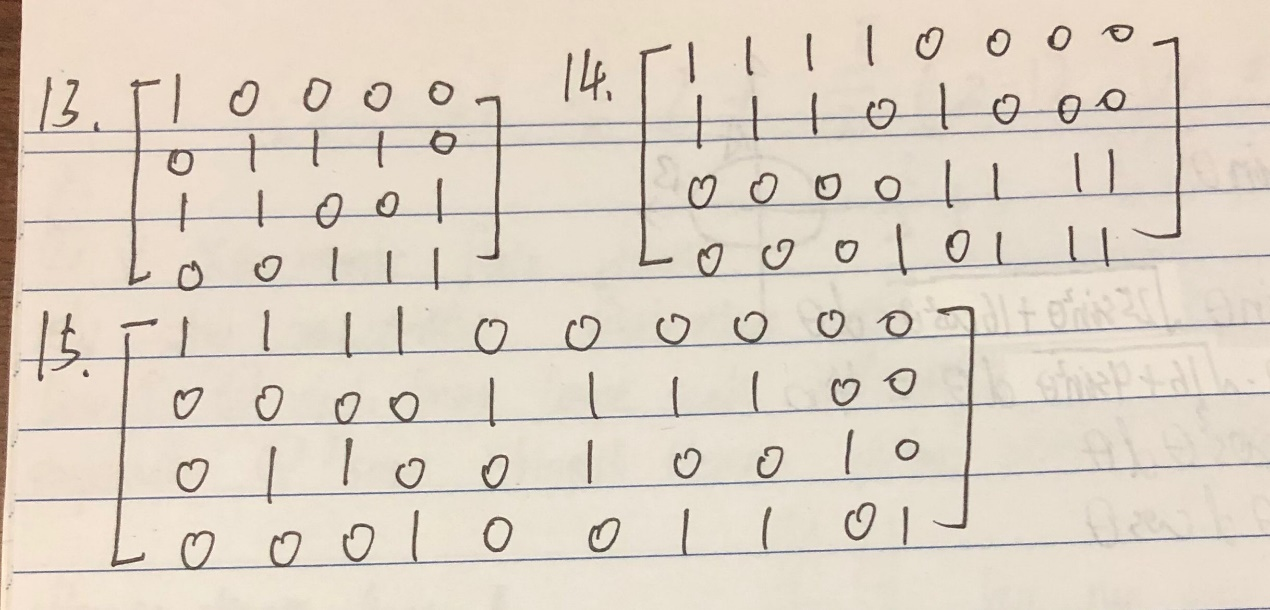 13. [1 0 0 0 0
0 1 1 1 0
1 1 0 0 1
0 0 1 1 1]
14. [1 1 1 1 0 0 0 0
1 1 1 0 1 0 0 0
0 0 0 0 1 1 1 1
0 0 0 1 0 1 1 1]
15. [1 1 1 1 0 0 0 0 0 0
0 0 0 0 1 1 1 1 0 0
0 1 1 0 0 1 0 0 1 0
0 0 0 1 0 0 1 1 0 1]